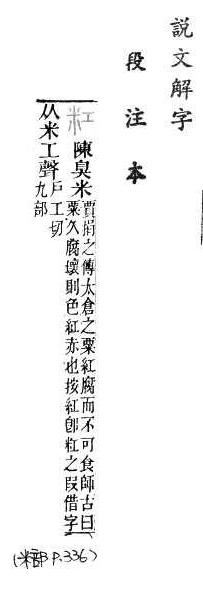 說文解字
段注本
粠 陳臭米 賈捐之傳太倉之粟紅腐而不可食師古曰
粟久腐壞則色紅赤也按紅卽粠之叚借字
从米工聲 戶工切
九部
(米部 P.336)